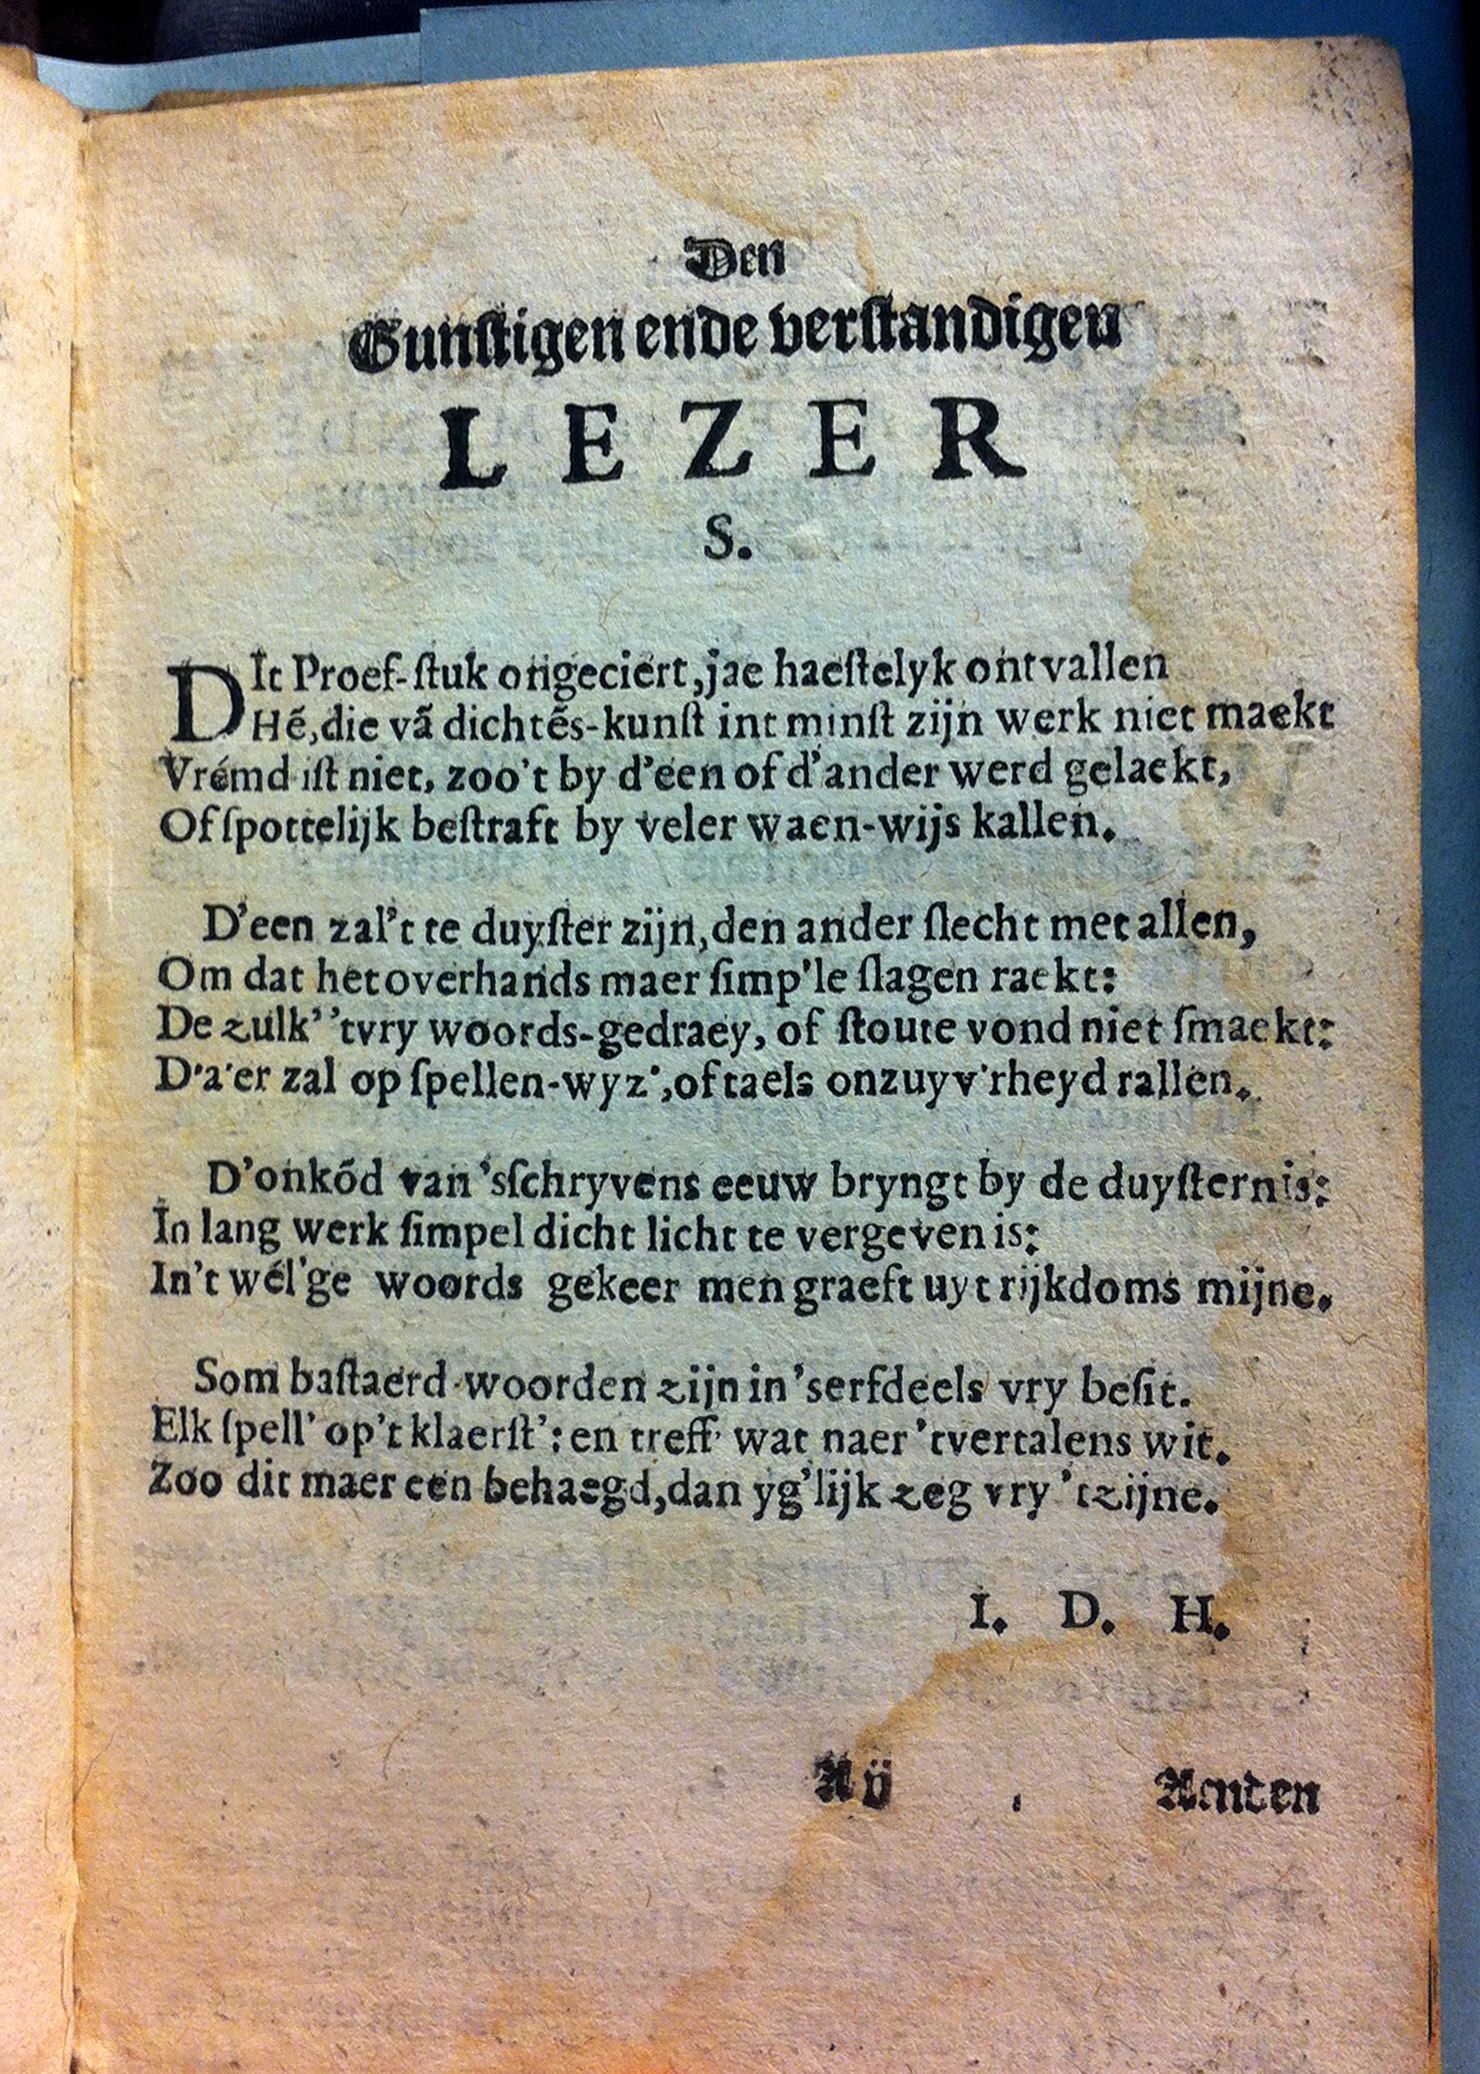 Den
Gunſtigen ende verſtandigen
LEZER
S.
DIt Proef-ſtuk ongeciert, jae haeſtelyk ontvallen
Hẽ, die vã dichtẽs-kunſt int minſt zijn werk niet maekt
Vrémd iſt niet, zoo't by d'een of d'ander werd gelaekt,
Of ſpottelijk beſtraft by veler waen-wijs kallen.
D'een zal't te duyſter zijn, den ander ſlecht met allen,
Om dat het overhands maer ſimp'le ſlagen raekt:
De zulk' 'tvry woords-gedraey, of ſtoute vond niet ſmaekt:
D'a'er zal op ſpellen-wyz', of taels onzuyv'rheyd rallen.
D'onkõd van 'sſchryvens eeuw bryngt by de duyſternis:
In lang werk ſimpel dicht licht te vergeven is:
In't wél'ge woords gekeer men graeft uyt rijkdoms mijne.
Som baſtaerd-woorden zijn in 'serfdeels vry beſit.
Elk ſpell' op't klaerſt': en treff' wat naer 'tvertalens wit.
Zoo dit maer een behaegd, dan yg'lijk zeg vry 'tzijne.
I. D. H.
Aij Amten